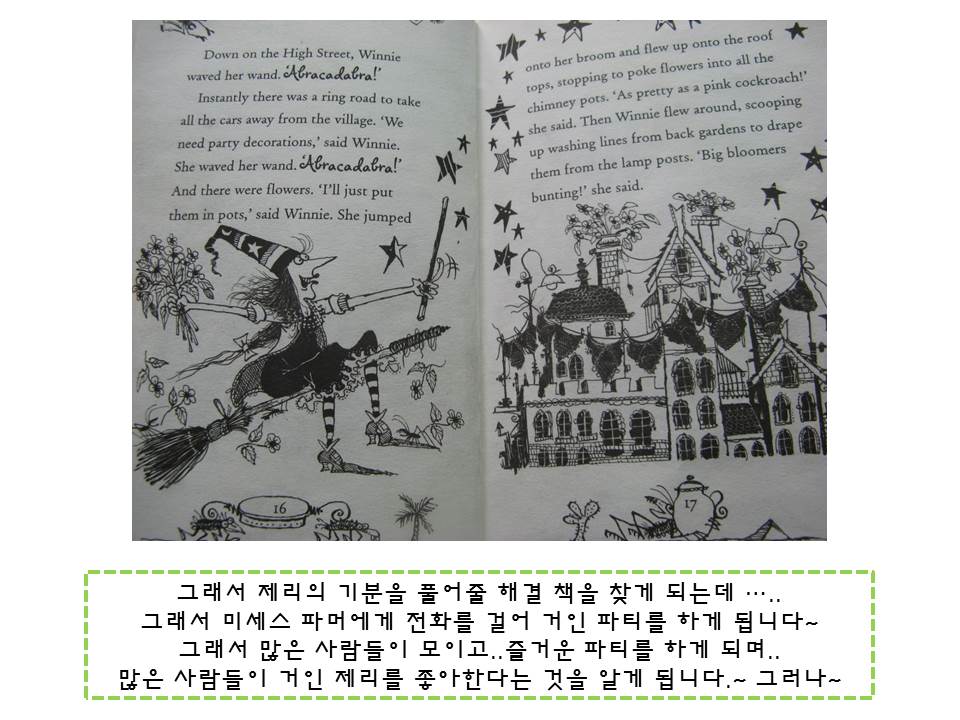 Down on the High Street, Winnie
waved her wand. ‘Abracadabra!’
Instantly there was a ring road to take
all the cars away from the village. ‘We
need party decorations,’ said Winnie.
She waved her wand. ‘Abracadabra!’
And there were flowers. ‘I’ll just put
them in pots,’ said Winnie. She jumped
16
onto her broom and flew up onto the roof
tops, stopping to poke flowers into all the
chimney pots. ‘As pretty as a pink cockroach!’
she said. Then Winnie flew around, scooping
up washing lines from back gardens to drape
them from the lamp posts. ‘Big bloomers
bunting!’ she said.
17
그래서 제리의 기분을 풀어줄 해결 책을 찾게 되는데 …..
그래서 미세스 파머에게 전화를 걸어 거인 파티를 하게 됩니다~
그래서 많은 사람들이 모이고..즐거운 파티를 하게 되며..
많은 사람들이 거인 제리를 좋아한다는 것을 알게 됩니다.~ 그러나~